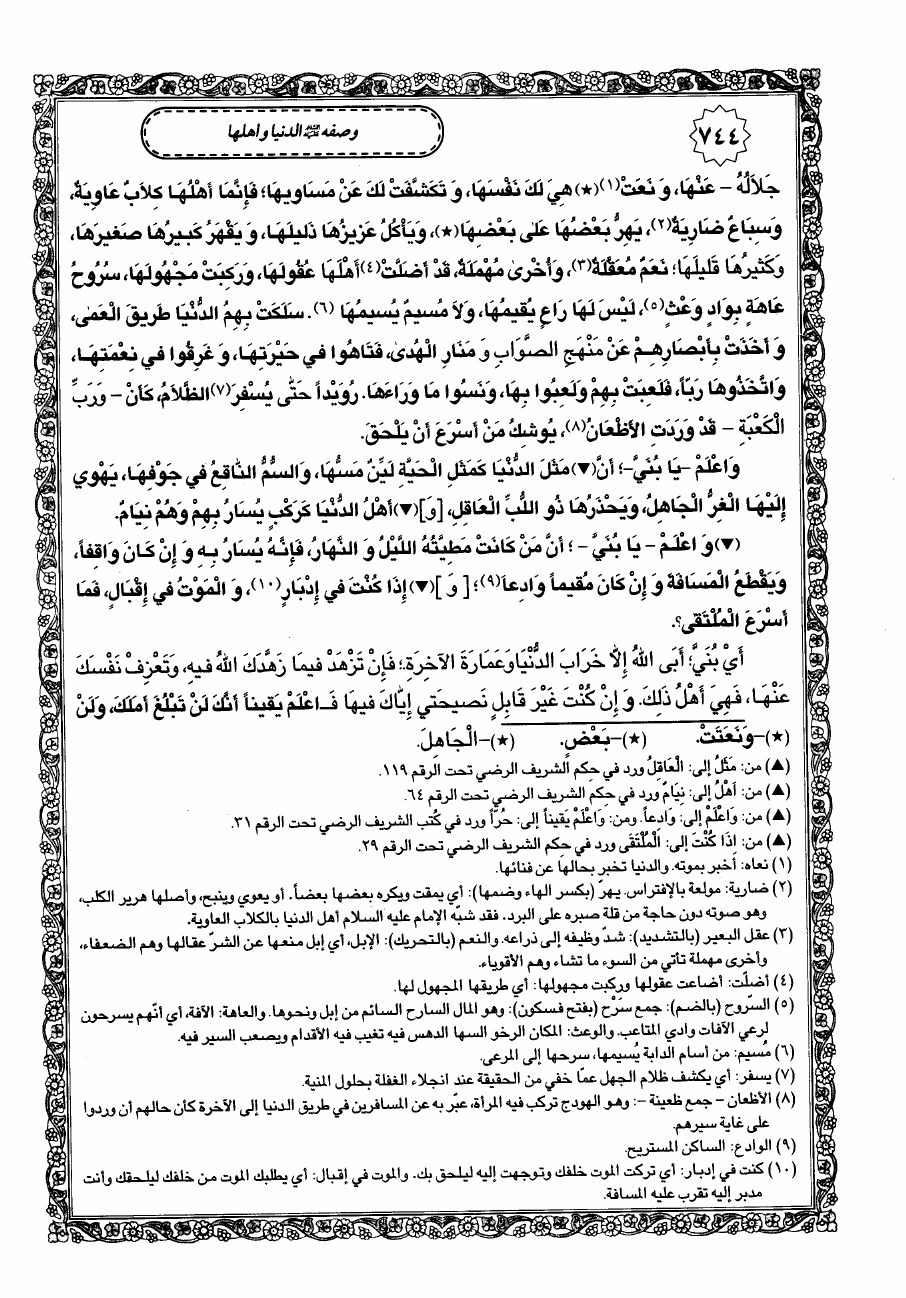 ٧٤٤
وصفه ﷺ الدنيا واهلها
جَلاَلُهُ - عَنْهَا، وَ نَعَتْ(١)(★) هِيَ لَكَ نَفْسَهَا، وَ تَكَشَّفَتْ لَكَ عَنْ مَسَاوِيهَا؛ فَإِنَّمَا أَهْلُهَا كِلاَبٌ عَاوِيَةٌ،
وَسِبَاعٌ ضَارِيَةٌ(٢)، يَهِرُّ بَعْضُهَا عَلى بَعْضِهَا(★)، وَيَأْكُلُ عَزِيزُهَا ذَلِيلَهَا، وَ يَقْهَرُ كَبِيرُهَا صَغيرَهَا،
وَكَثيرُهَا قَليلَهَا؛ نَعَمٌ مُعَقَّلَةٌ(٣)، وَأُخْرىٰ مُهْمَلَةٌ، قَدْ أَضَلَّتْ(٤) أَهْلَهَا عُقُولَهَا، وَرَكِبَتْ مَجْهُولَهَا، سُرُوحُ
عَاهَةٍ بِوَادٍ وَعْثٍ(٥)، لَيْسَ لَهَا رَاعٍ يُقيمُهَا، وَلاَ مُسيمٌ يُسيمُهَا (٦). سَلَكَتْ بِهِمُ الدُّنْيَا طَريقَ الْعَمٰى،
وَ أَخَذَتْ بِأَبْصَارِهِمْ عَنْ مَنْهَجِ الصَّوَابِ وَ مَنَارِ الْهُدىٰ، فَتَاهُوا في حَيْرَتِهَا، وَ غَرِقُوا في نِعْمَتِهَا،
وَاتَّخَذُوهَا رَبّاً، فَلَعِبَتْ بِهِمْ وَلَعِبُوا بِهَا، وَنَسُوا مَا وَرَاءَهَا. رُوَيْداً حَتّٰى يُسْفِرَ(٧)الظَّلاَمُ، كَأَنْ - وَرَبِّ
الْكَعْبَةِ - قَدْ وَرَدَتِ الأَظْعَانُ(٨)، يُوشِكُ مَنْ أَسْرَعَ أَنْ يَلْحَقَ.
وَاعْلَمْ -يَا بُنَيَّ-؛ أَنَّ(▼) مَثَلَ الدُّنْيَا كَمَثَلِ الْحَيَّةِ لَيِّنٌ مَسُّهَا، وَالسُّمُّ النَّاقِعُ في جَوْفِهَا، يَهْوي
إِلَيْهَا الْغِرُّ الْجَاهِلُ، وَيَحْذَرُهَا ذُو اللُّبِّ الْعَاقِلِ، [وَ](▼) أَهْلُ الدُّنْيَا كَرَكْبٍ يُسَارُ بِهِمْ وَهُمْ نِيَامٌ.
(▼) وَ اعْلَمْ - يَا بُنَيَّ - ؛ أَنَّ مَنْ كَانَتْ مَطِيَّتُهُ اللَّيْلُ وَ النَّهَارُ، فَإِنَّهُ يُسَارُ بِهِ وَ إِنْ كَانَ وَاقِفاً،
وَيَقْطَعُ الْمَسَافَةَ وَ إِنْ كَانَ مُقيماً وَادِعاً(٩)؛ [ وَ ](▼) إِذَا كُنْتَ في إِدْبَارٍ(١٠)، وَ الْمَوْتُ في إِقْبَالٍ، فَمَا
أَسْرَعَ الْمُلْتَقى؟.
أَيْ بُنَيَّ؛ أَبَى اللهُ إِلاَّ خَرَابَ الدُّنْيَا وَعَمَارَةَ الآخِرَةِ.؛ فَإِنْ تَزْهَدْ فيمَا زَهَّدَكَ اللهُ فيهِ، وَتَعْزِفْ نَفْسَكَ
عَنْهَا، فَهِيَ أَهْلُ ذَلِكَ. وَ إِنْ كُنْتَ غَيْرَ قَابِلٍ نَصيحَتي إِيَّاكَ فيهَا فَـاعْلَمْ يَقيناً أَنَّكَ لَنْ تَبْلُغَ أَمَلَكَ، وَلَنْ
(★)-وَنَعَتَتْ. (★)-بَعْضٍ. (★)-الْجَاهِلَ.
(▲) من: مَثَلُ إلى: الْعَاقِلُ ورد في حِكم الشريف الرضي تحت الرقم ١١٩.
(▲) من: أَهْلُ إلى: نِيَامٌ ورد في حكم الشريف الرضي تحت الرقم ٦٤.
(▲) من: وَاعْلَمْ إلى: وَادِعاً. ومن: وَاعْلَمْ يَقيناً إلى: حُرّاً ورد في كُتب الشريف الرضي تحت الرقم ٣١.
(▲) من: إِذَا كُنْتَ إلى: الْمُلْتَقى ورد في حكم الشريف الرضي تحت الرقم ٢٩.
(١) نعاه: أخبر بموته. والدنيا تخبر بحالها عن فنائها.
(٢) ضارية: مولعة بالإفتراس. يهرّ (بكسر الهاء وضمها): أي يمقت ويكره بعضها بعضاً. أو يعوي وينبح، وأصلها هرير الكلب،
وهو صوته دون حاجة من قلة صبره على البرد. فقد شبّه الإمام عليه السلام أهل الدنيا بالكلاب العاوية.
(٣) عقل البعير (بالتشديد): شدّ وظيفه إلى ذراعه. والنعم (بالتحريك): الإبل، أي إبل منعها عن الشرّ عقالها وهم الضعفاء،
وأخرى مهملة تأتي من السوء ما تشاء وهم الأقوياء.
(٤) أضلّت: أضاعت عقولها وركبت مجهولها: أي طريقها المجهول لها.
(٥) السّروح (بالضم): جمع سَرْح (بفتح فسكون): وهو المال السارح السائم من إبل ونحوها. والعاهة: الآفة، أي أنّهم يسرحون
لرعي الآفات وادي المتاعب. والوعث: المكان الرخو السها الدهس فيه تغيب فيه الأقدام ويصعب السير فيه.
(٦) مُسيم: من أسام الدابة يُسيمها، سرحها إلى المرعى.
(٧) يسفر: أي يكشف ظلام الجهل عمّا خفي من الحقيقة عند انجلاء الغفلة بحلول المنية.
(٨) الأظعان - جمع ظعينة -: وهو الهودج تركب فيه المرأة، عبّر به عن المسافرين في طريق الدنيا إلى الآخرة كأن حالهم أن وردوا
على غاية سيرهم.
(٩) الوادع: الساكن المستريح.
(١٠) كنت في إدبار: أي تركت الموت خلفك وتوجهت إليه ليلحق بك. والموت في إقبال: أي يطلبك الموت من خلفك ليلحقك وأنت
مدبر إليه تقرب عليه المسافة.